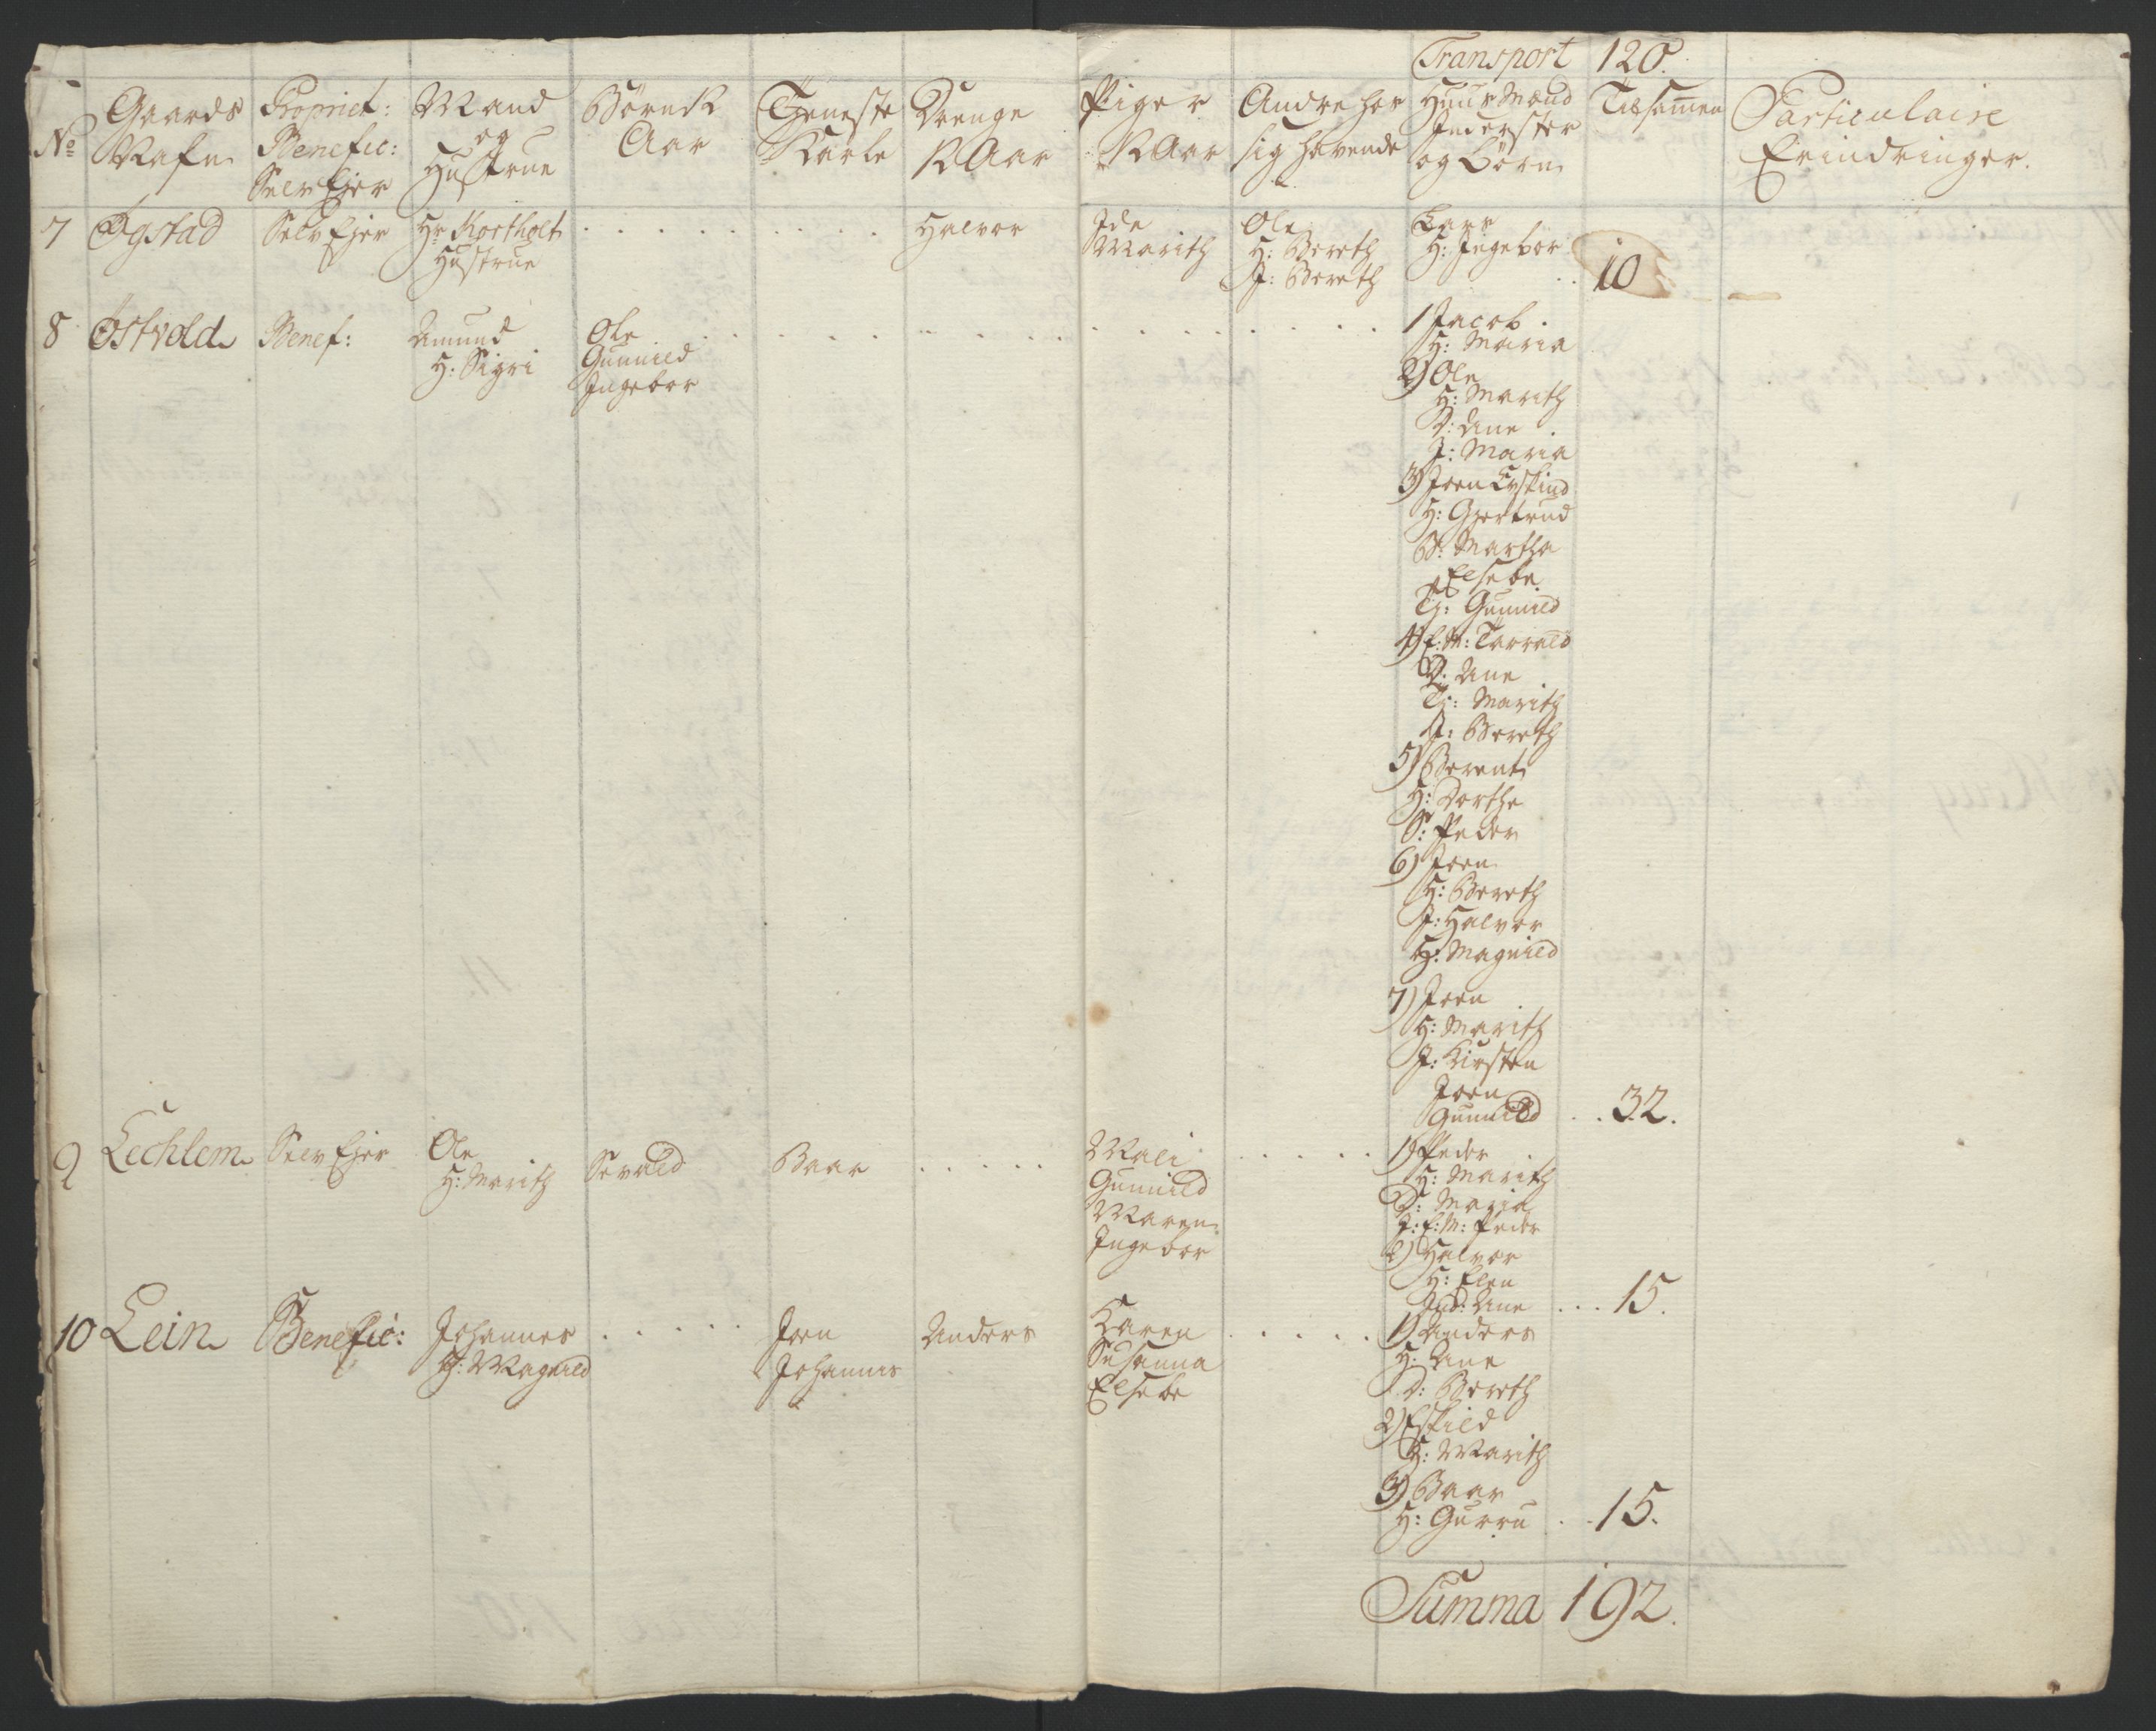 Transport 120.
No
Gaards Nafn
Propriet: Benefic: Selv Ejer
Mand og Hustrue
Børn Aar
Tjeneste Karle
Drenge Aar
Piger Aar
Andre hos sig havende
Huus Mænd Inderster og Børn
Tilsamen
Particulaire Erindringer.
7 Øgstad
Selv Ejer
Hr Kortholt
Hustrue
Halvor
Ide
Marith
Ole
H: Bereth
J: Bereth
Lars
H: Ingebor
10
8 Østvold
Benef:
Amund
H: Sigri
Ole
Gunnild
Ingebor
1 Jacob
H: Maria
2) Ole
H: Marith
D: Ane
J: Maria
3) Joen Eyskind
H: Gjertrud
B: Martha
Elsebe
Tj: Gunnild
4) E: M: Tarrald
D: Ane
Tj: Marith
J: Bereth
5) Berent
H: Dorthe
S: Peder
6) Joen
H: Bereth
J: Halvor
H: Magnild
7) Joen
H: Marith
J: Kirsten
Joen
Gunnild
32.
9 Lechlem
Selv Ejer
Ole
H: Marith
Sevald
Baar
Mali
Gunnild
Maren
Ingebor
1) Peder
H: Marith
D: Maria
J: E: M: Peder
2) Halvor
H: Elen
Ind: Ane
15.
10 Lein
Benefic:
Johannes
H: Magnild
Joen
Johannes
Anders
Karen
Susanna
Elsebe
1) Anders
H: Ane
D: Bereth
2) Eskild
H: Marith
3) Baar
H: Gurru
15.
Summa 192.